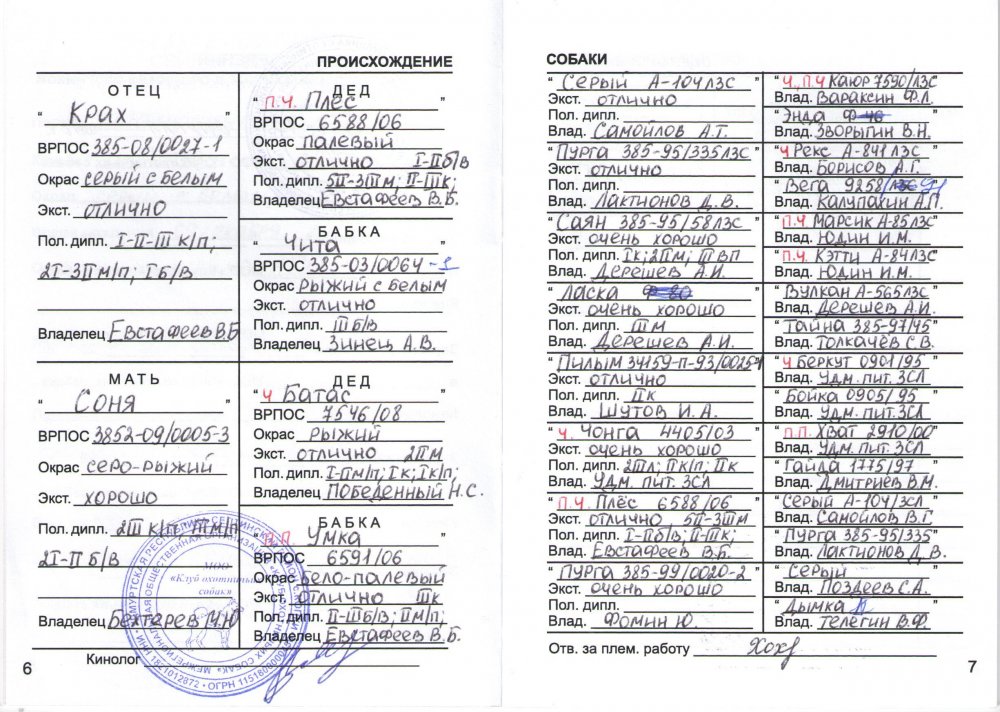 ПРОИСХОЖДЕНИЕ
ОТЕЦ
" Крах "
ВРПОС 385-08/0027-1
Окрас серый с белым
Экст. отлично
Пол. дипл. I-II-III к/п;
2I-3II м/п; I б/в
Владелец Евстафеев В.Б
ДЕД
" П.Ч. Плёс "
ВРПОС 6588/06
Окрас палевый
Экст. отлично I-II б/в
Пол. дипл. 5II-3III м; II-III к;
Владелец Евстафеев В.Б.
БАБКА
" Чита "
ВРПОС 385-03/0064-1
Окрас рыжий с белым
Экст. отлично
Пол. дипл. III б/в
Владелец Зинец А.В.
МАТЬ
" Соня "
ВРПОС 3852-09/0005-3
Окрас серо-рыжий
Экст. хорошо
Пол. дипл. 2III к/п III м/п
2I-II б/в
Владелец Бехтарев М.Ю
ДЕД
" Ч Батас "
ВРПОС 7546/08
Окрас рыжий
Экст. отлично 2II м
Пол. дипл. I-II м/п; I к; I к/п;
Владелец Победенный Н.С.
БАБКА
" П.П. Умка "
ВРПОС 6591/06
Окрас бело-палевый
Экст. отлично III к
Пол. дипл. II-III б/в; II м/п;
Владелец Евстафеев В.Б.
МОО
«Клуб охотничьих
собак»
Кинолог
6
СОБАКИ
" Серый А-104 ЛЗС "
Экст. отлично
Пол. дипл.
Влад. Самойлов А.Т.
" Пурга 385-95/335 ЛЗС "
Экст. отлично
Пол. дипл.
Влад. Лактионов Д.В.
" Саян 385-95/58 ЛЗС "
Экст. очень хорошо
Пол. дипл. I к; 2II м; III ВП
Влад. Дерешев А.И.
" Ласка Ф-80 "
Экст. очень хорошо
Пол. дипл. III м
Влад. Дерешев А.И.
" Пилым 34159-п-93/0025-1
Экст. отлично
Пол. дипл. II к
Влад. Шутов И.А.
" Ч. Чонга 4405/03 "
Экст. очень хорошо
Пол. дипл. 2III л; II к/п; II к
Влад. Удм. пит. ЗСЛ
" П.Ч. Плёс 6588/06 "
Экст. отлично 5II-3III м
Пол. дипл. I-II б/в; II-III к;
Влад. Евстафеев В.Б.
" Пурга 385-99/0020-2 "
Экст. очень хорошо
Пол. дипл.
Влад. Фомин Ю.
" Ч, П.Ч Каюр 7590/ЛЗС
Влад. Вараксин Ф.Л.
" Энда Ф-40 "
Влад. Зворыгин В.Н.
" Ч Рекс А-841 ЛЗС "
Влад. Борисов А.Г.
" Вега 9258/ЛЗС-91
Влад. Калупахин А.П.
" П.Ч. Марсик А-85 ЛЗС "
Влад. Юдин И.М.
" П.Ч. Кэтти А-84 ЛЗС "
Влад. Юдин И.М.
" Вулкан А-565 ЛЗС "
Влад. Дерешев А.И.
" Тайна 385-97/45 "
Влад. Толкачёв С.В.
" Ч Беркут 0901/95 "
Влад. Удм. пит. ЗСЛ
" Бойка 0905/95 "
Влад. Удм. пит. ЗСЛ
" П.П. Хват 2910/00 "
Влад. Удм. пит. ЗСЛ
" Гайда 1775/97 "
Влад. Дмитриев В.М.
" Серый А-104/ЗСЛ "
Влад. Самойлов В.Г.
" Пурга 385-95/335 "
Влад. Лактионов Д.В.
" Серый "
Влад. Поздеев С.А.
" Дымка "
Влад. Телегин В.Ф.
Отв. за плем. работу
7